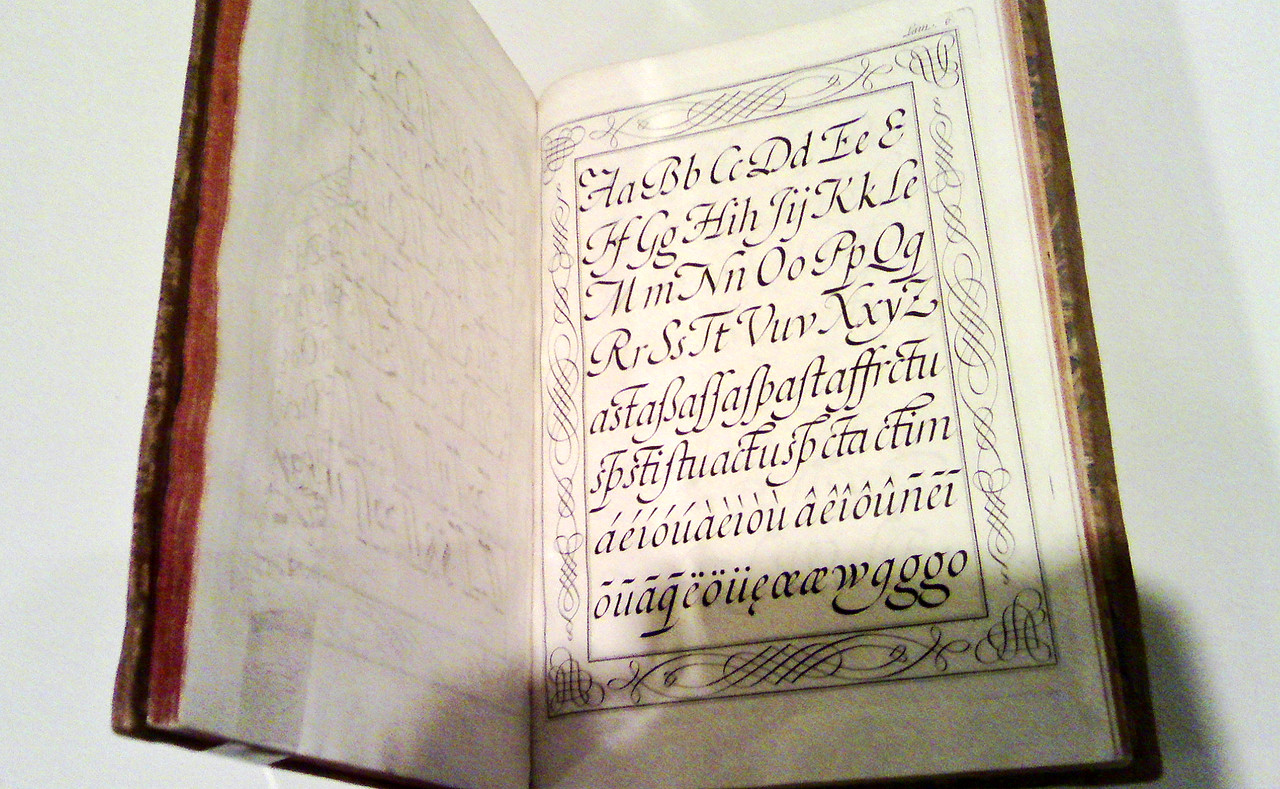 Lam. 6.
Aa Bb Cc Dd Ee E
Ff Gg Hih Jij Kk Le
M m Nñ Oo Pp Qq
Rr Ss Tt Vuv XxyZ
astaßaſſaſpaſtaffrctu
spstiſtuactuspctactim
áéíóúàèìòù âêîôûñēī
ōūāq̄ëöüęœæwgggo